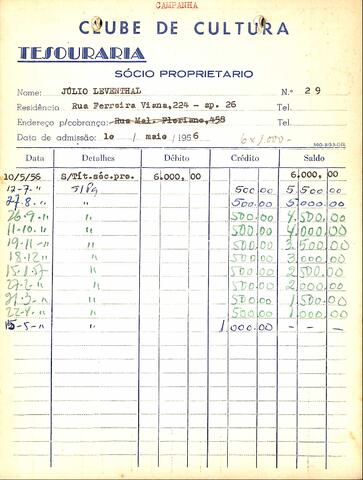 CAMPANHA
CLUBE DE CULTURA
TESOURARIA
SÓCIO PROPRIETARIO
Nome: JÚLIO LEVENTHAL N.º 29
Residência Rua Ferreira Viana, 224 - ap. 26 Tel.
Endereço p/cobrança: Rua Mal. Floriano, 458 Tel.
Data de admissão: 1o / maio / 1956 6x1.000-
Data Detalhes Débito Crédito Saldo
10/5/56 S/Tít.sóc.pro. 6.000,00 6.000,00
12-7-" S/Pg 500.00 5.500.00
27-8-" " 500.00 5.000.00
26-9-" " 500.00 4.500.00
11-10-" " 500.00 4.000.00
19-11-" " 500.00 3.500.00
18-12-" " 500.00 3.000.00
15-1-57 " 500.00 2.500.00
27-2-" " 500.00 2.000.00
21-3-" " 500.00 1.500.00
22-4-" " 500.00 1.000.00
15-5-" " 1.000.00 - - -